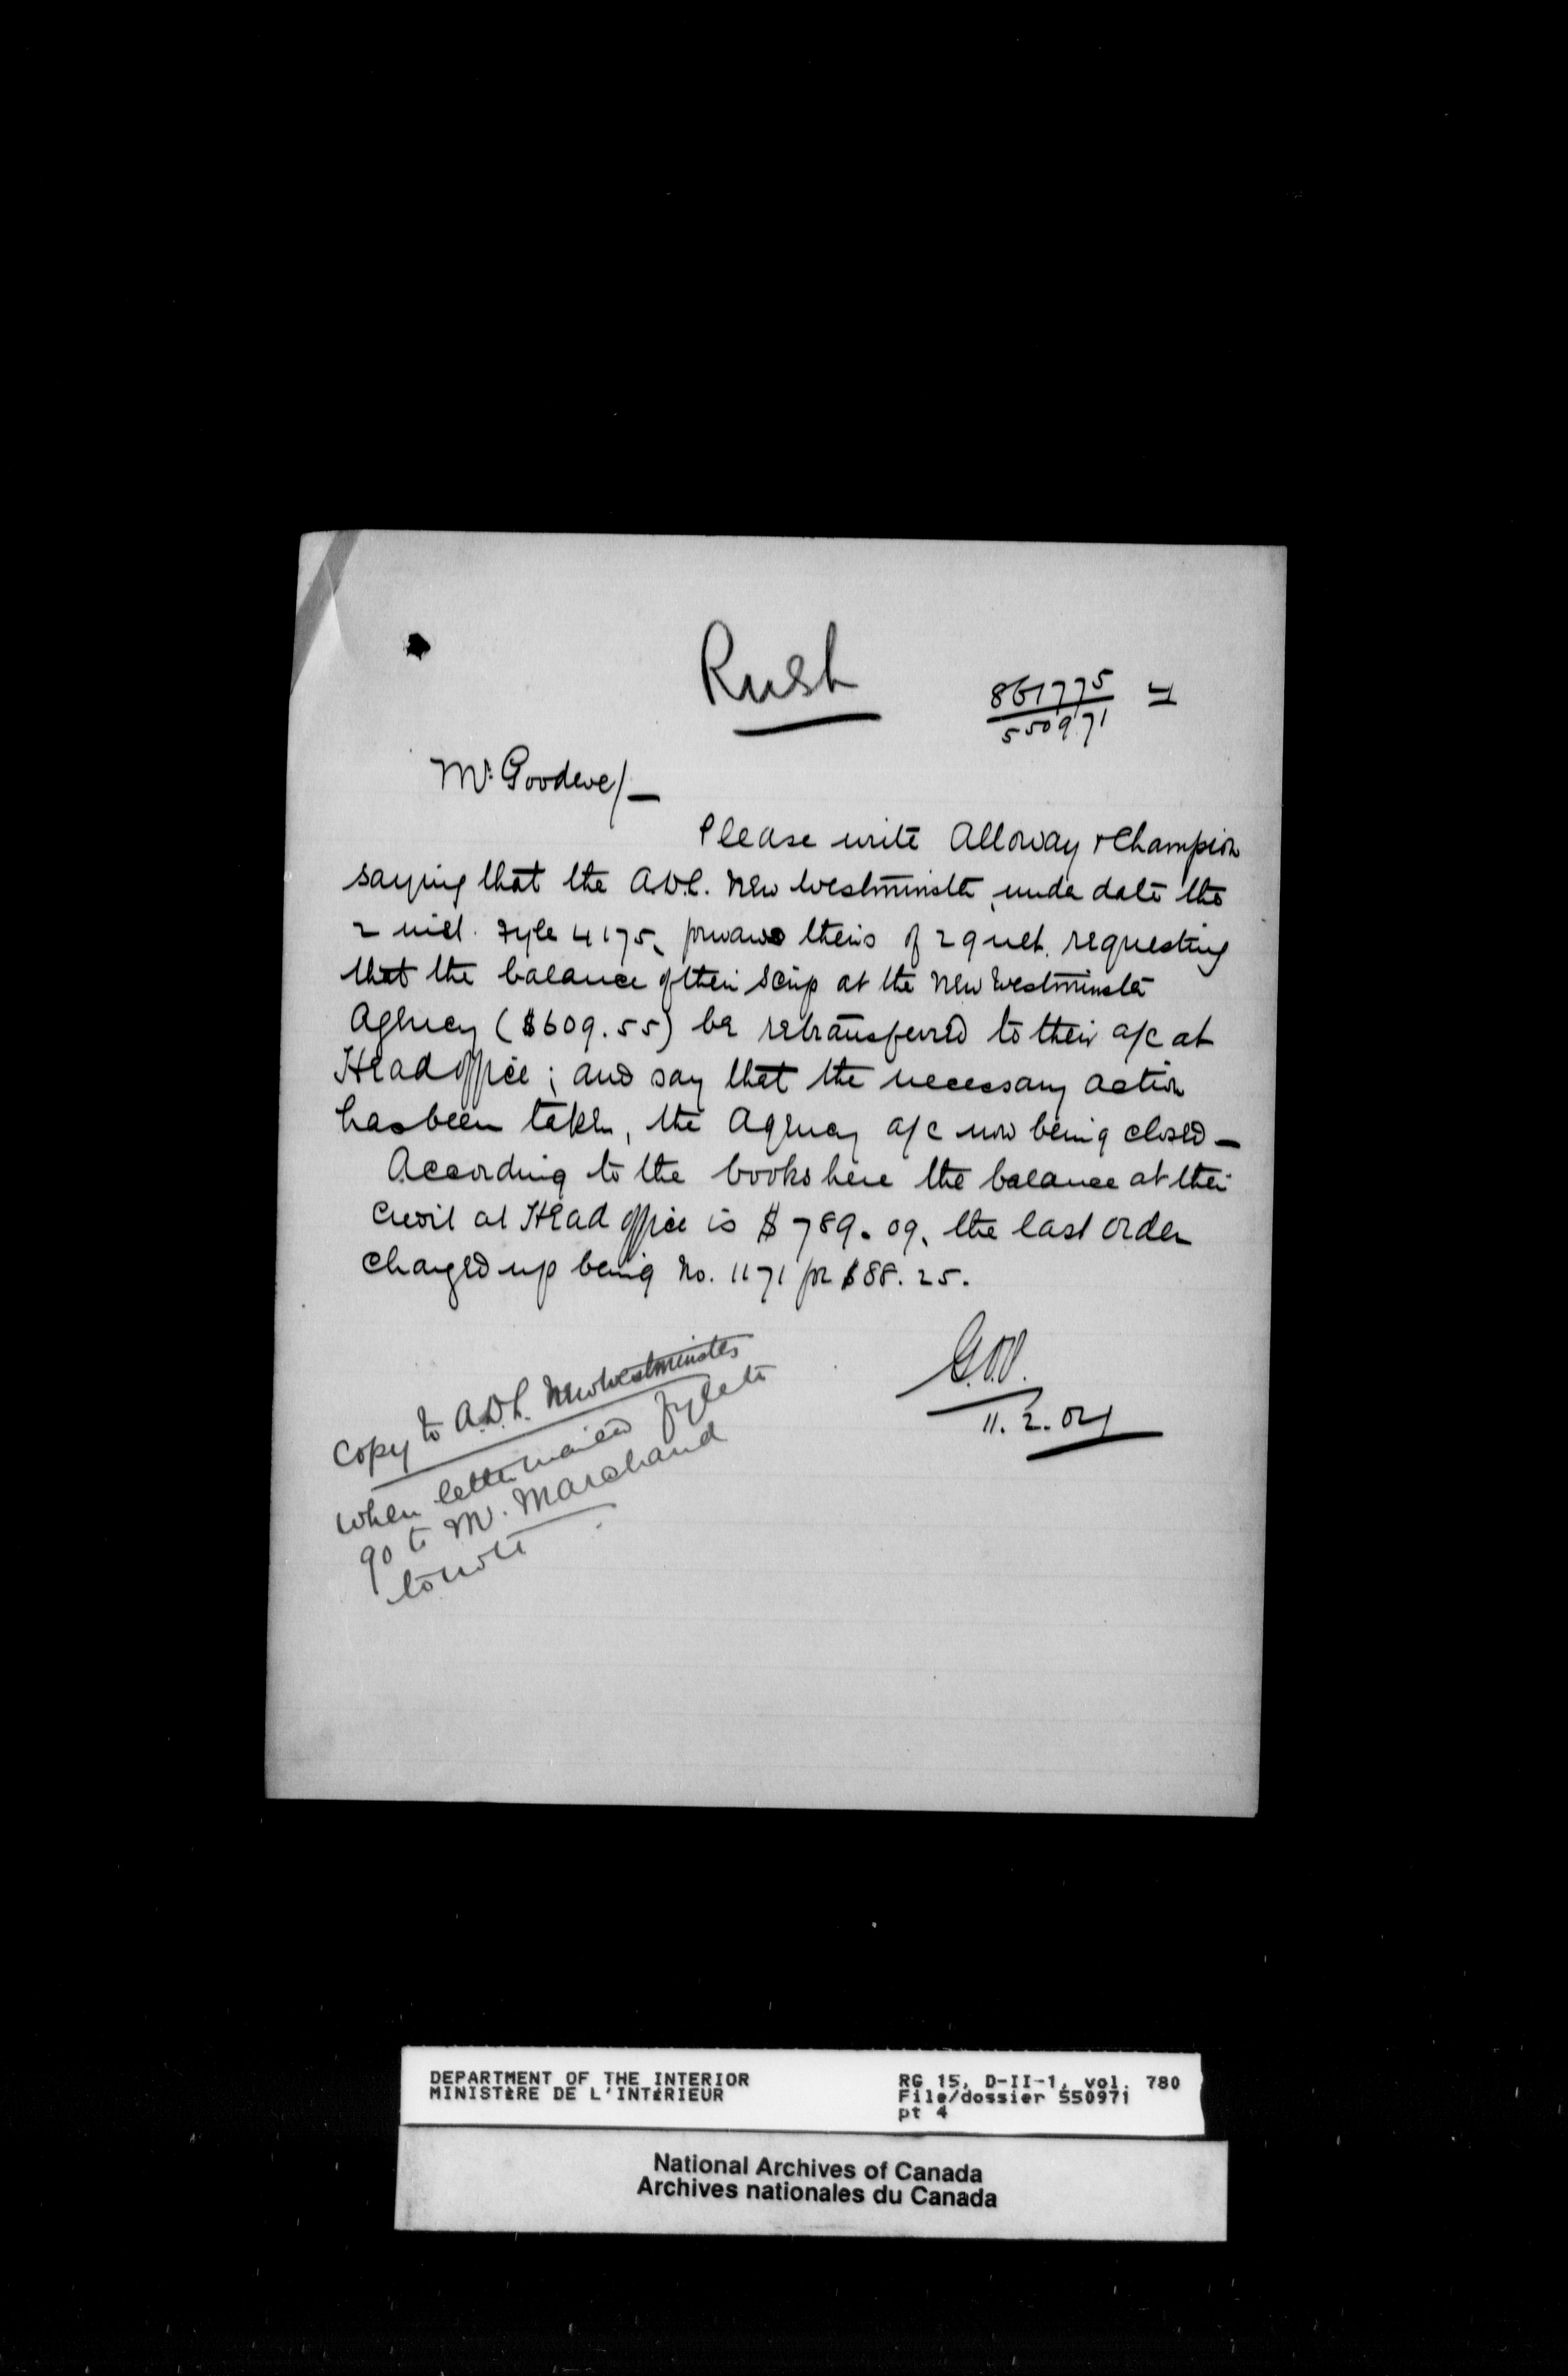 Rush
861775
550971
Mr. Goodeve/—
Please write Alloway & Champion
saying that the A.D.L. New Westminster, under date the
2 inst. Fyle 4175, forwards theirs of 29 ult. requesting
that the balance of their scrip at the New Westminster
Agency ($609.55) be retransferred to their a/c at
Head office; and say that the necessary action
has been taken, the Agency a/c now being closed —
According to the books here the balance at their
credit at Head office is $789.09, the last order
charged up being No. 1171 for $88.25.
11.2.04
Copy to A.D.L. New Westminster
when letter mailed fyle to
go to Mr. Marchand
to note
DEPARTMENT OF THE INTERIOR
MINISTÈRE DE L'INTÉRIEUR
RG 15, D-II-1, vol. 780
File/dossier 550971
pt 4
National Archives of Canada
Archives nationales du Canada